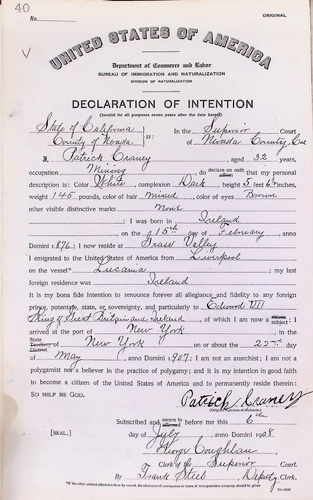 40
ORIGINAL
No.
UNITED STATES OF AMERICA
Department of Commerce and Labor
BUREAU OF IMMIGRATION AND NATURALIZATION
DIVISION OF NATURALIZATION
DECLARATION OF INTENTION
(Invalid for all purposes seven years after the date hereof)
State of California
County of Nevada ss:
In the Superior Court
of Nevada County, Cal
I, Patrick Craney, aged 32 years,
occupation Mining, do declare on oath that my personal
description is: Color White, complexion Dark, height 5 feet inches,
weight 145 pounds, color of hair mixed, color of eyes Brown
other visible distinctive marks None
I was born in Ireland
on the 15th day of February, anno
Domini 1876; I now reside at Grass Valley
I emigrated to the United States of America from Liverpool
on the vessel* Lucania; my last
foreign residence was Ireland
It is my bona fide intention to renounce forever all allegiance and fidelity to any foreign
prince, potentate, state, or sovereignty, and particularly to Edward VII
King of Great Britain and Ireland, of which I am now a subject; I
arrived at the port of New York, in the
State Territory District of New York on or about the 22nd day
of May, anno Domini 1907; I am not an anarchist; I am not a
polygamist nor a believer in the practice of polygamy; and it is my intention in good faith
to become a citizen of the United States of America and to permanently reside therein:
SO HELP ME GOD.
Patrick Craney
(Original signature of declarant)
Subscribed and sworn to before me this 6th
[SEAL.] day of July, anno Domini 1908
George Coughlan
Clerk of the Superior Court.
By Frank Steel, Deputy Clerk.